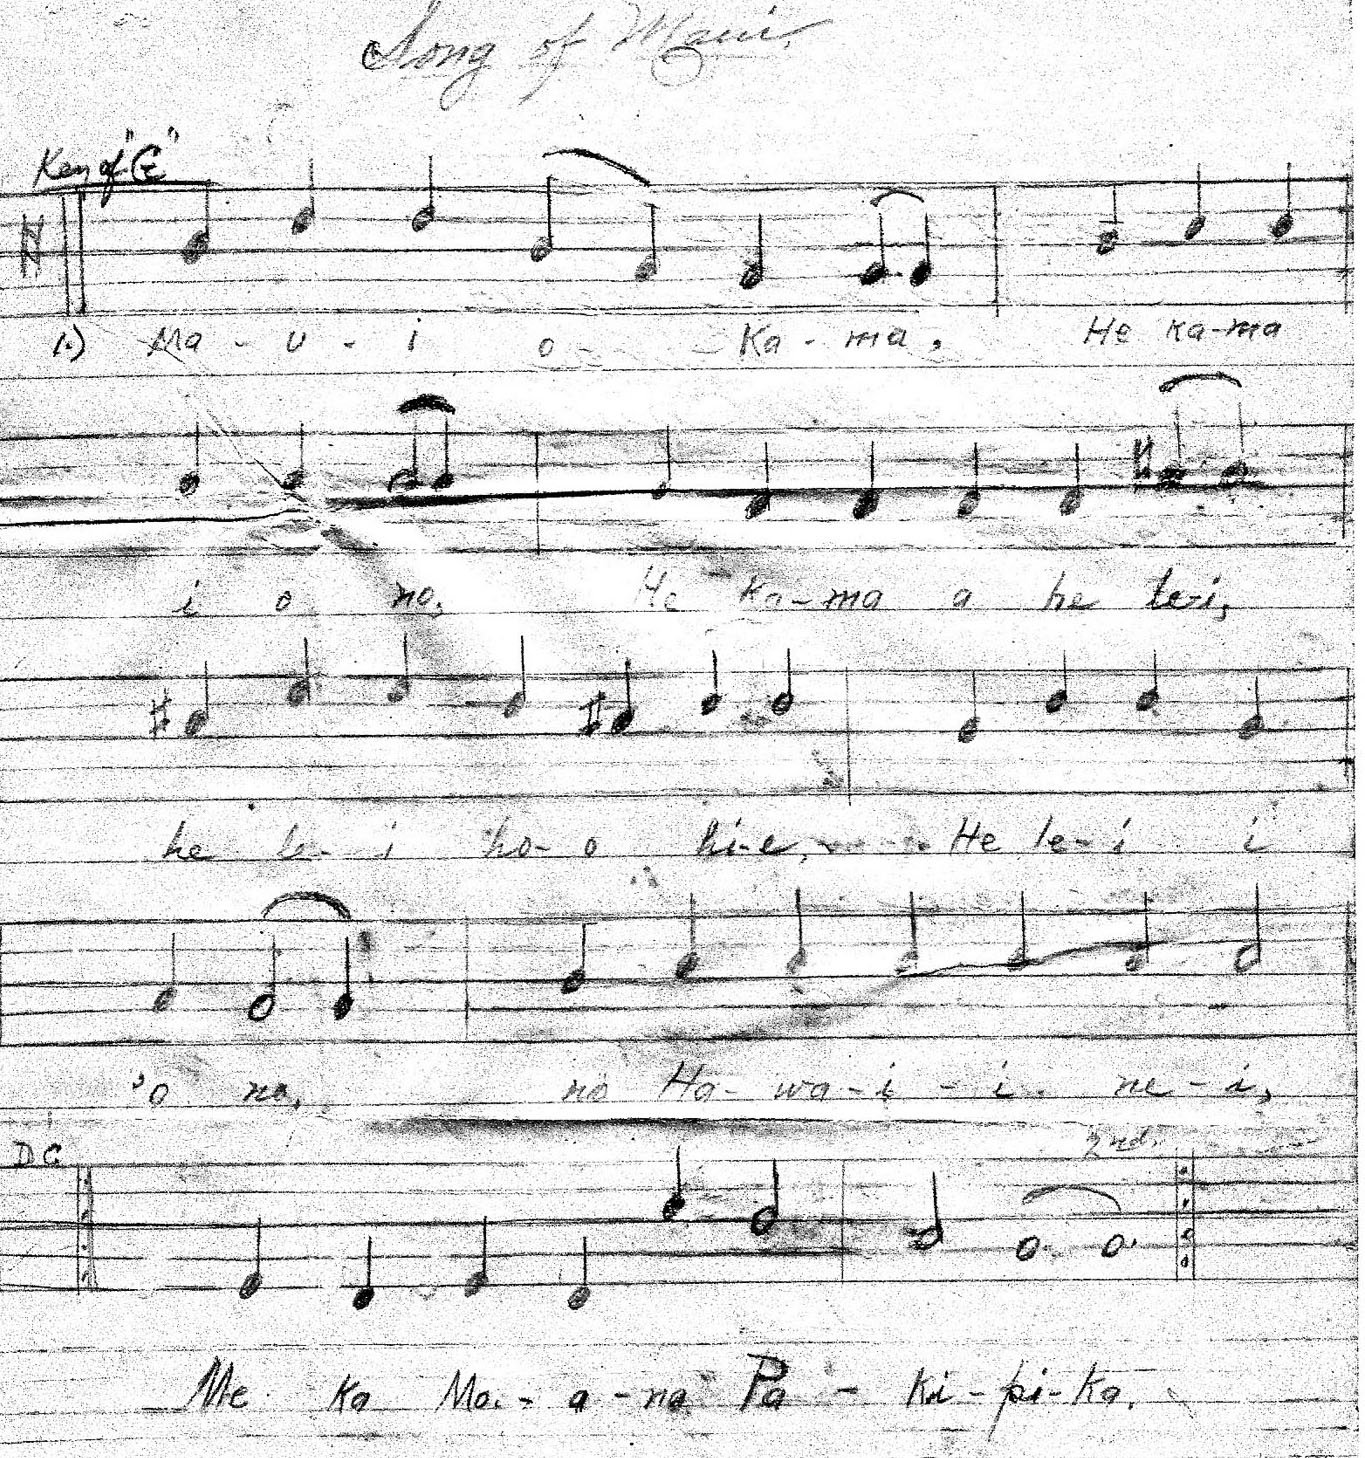 Song of Maui.
Key of "G"
1.) Ma - u - i o - Ka - ma, He ka-ma
i o no, He Ka-ma a he le-i,
he le-i ho-o hi-e, He le-i i
'o no, no Ha-wa-i - i ne-i,
D C 2nd.
Me Ka Mo.- a-na Pa - Ki-pi-ka.